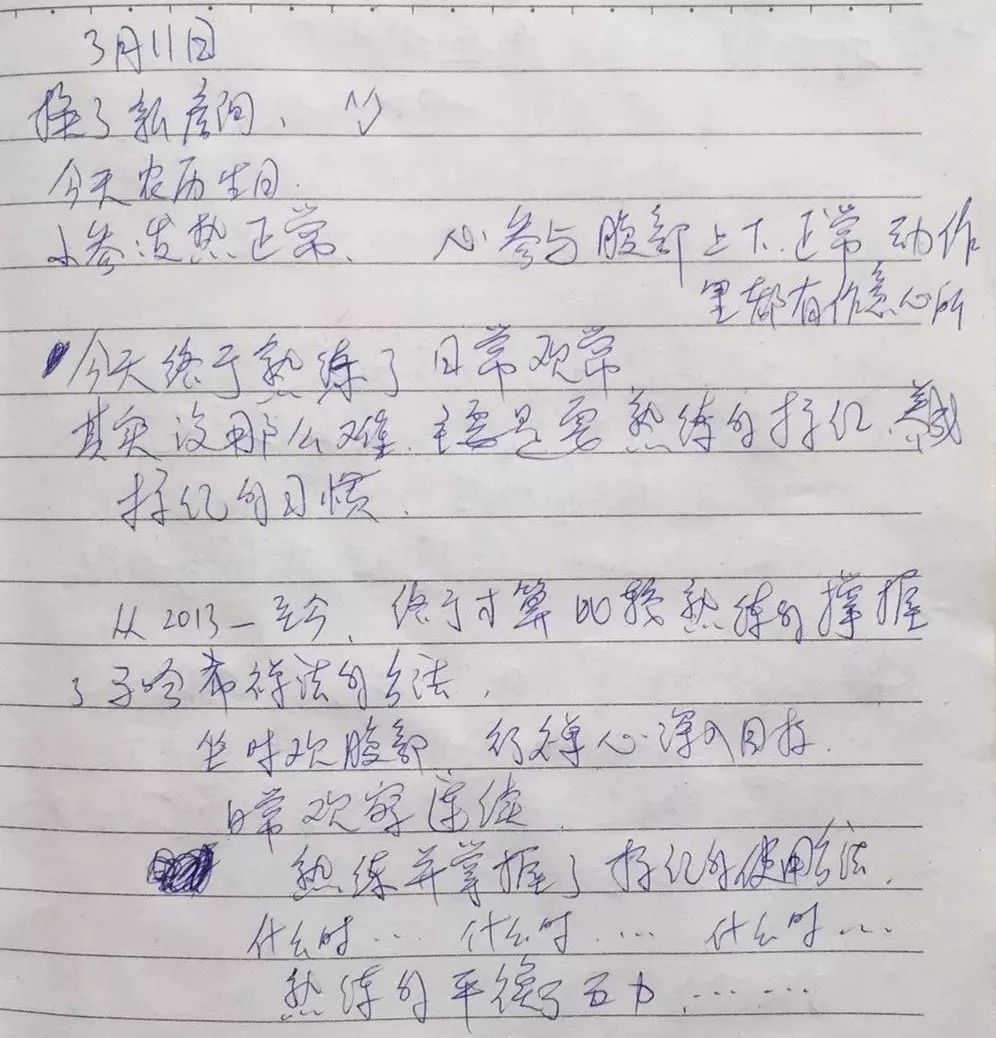 3月11日
换了新房间、
今天农历生日.
小参发热正常、 心参与腹部上下.正常动作
里都有作意心所
今天终于熟练了日常观常
其实没那么难.主要是要熟练的标记、养成
标记的习惯.
从2013-至今、终于才算比较熟练的掌握
了马哈希禅法的方法、
坐时观腹部、行禅心深入目标.
日常观察连续.
熟练并掌握了标记的使用方法.
什么时... 什么时... 什么时...
熟练的平衡了五力......